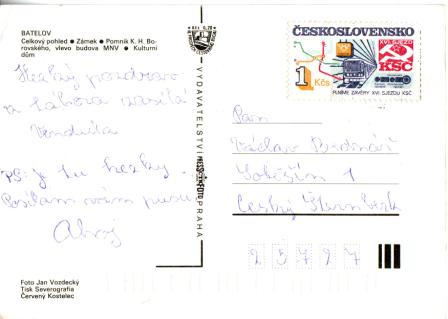 BATELOV
Celkový pohled ● Zámek ● Pomník K. H. Bo-
rovského, vlevo budova MNV ● Kulturní
dům
Hezký pozdrav
z tábora zasílá
Vendula
PS: je tu hezky.
Posílám vám pusu
Ahoj
Foto Jan Vozdecký
Tisk Severografia
Červený Kostelec
VYDAVATELSTVÍ PRESSFOTO PRAHA
ČESKOSLOVENSKO
XVII. SJEZD
KSČ
1 Kčs
PLNÍME ZÁVĚRY XVII. SJEZDU KSČ
Pan
Václav
Soběšín 1
Český Šternberk
2 5 7 2 7